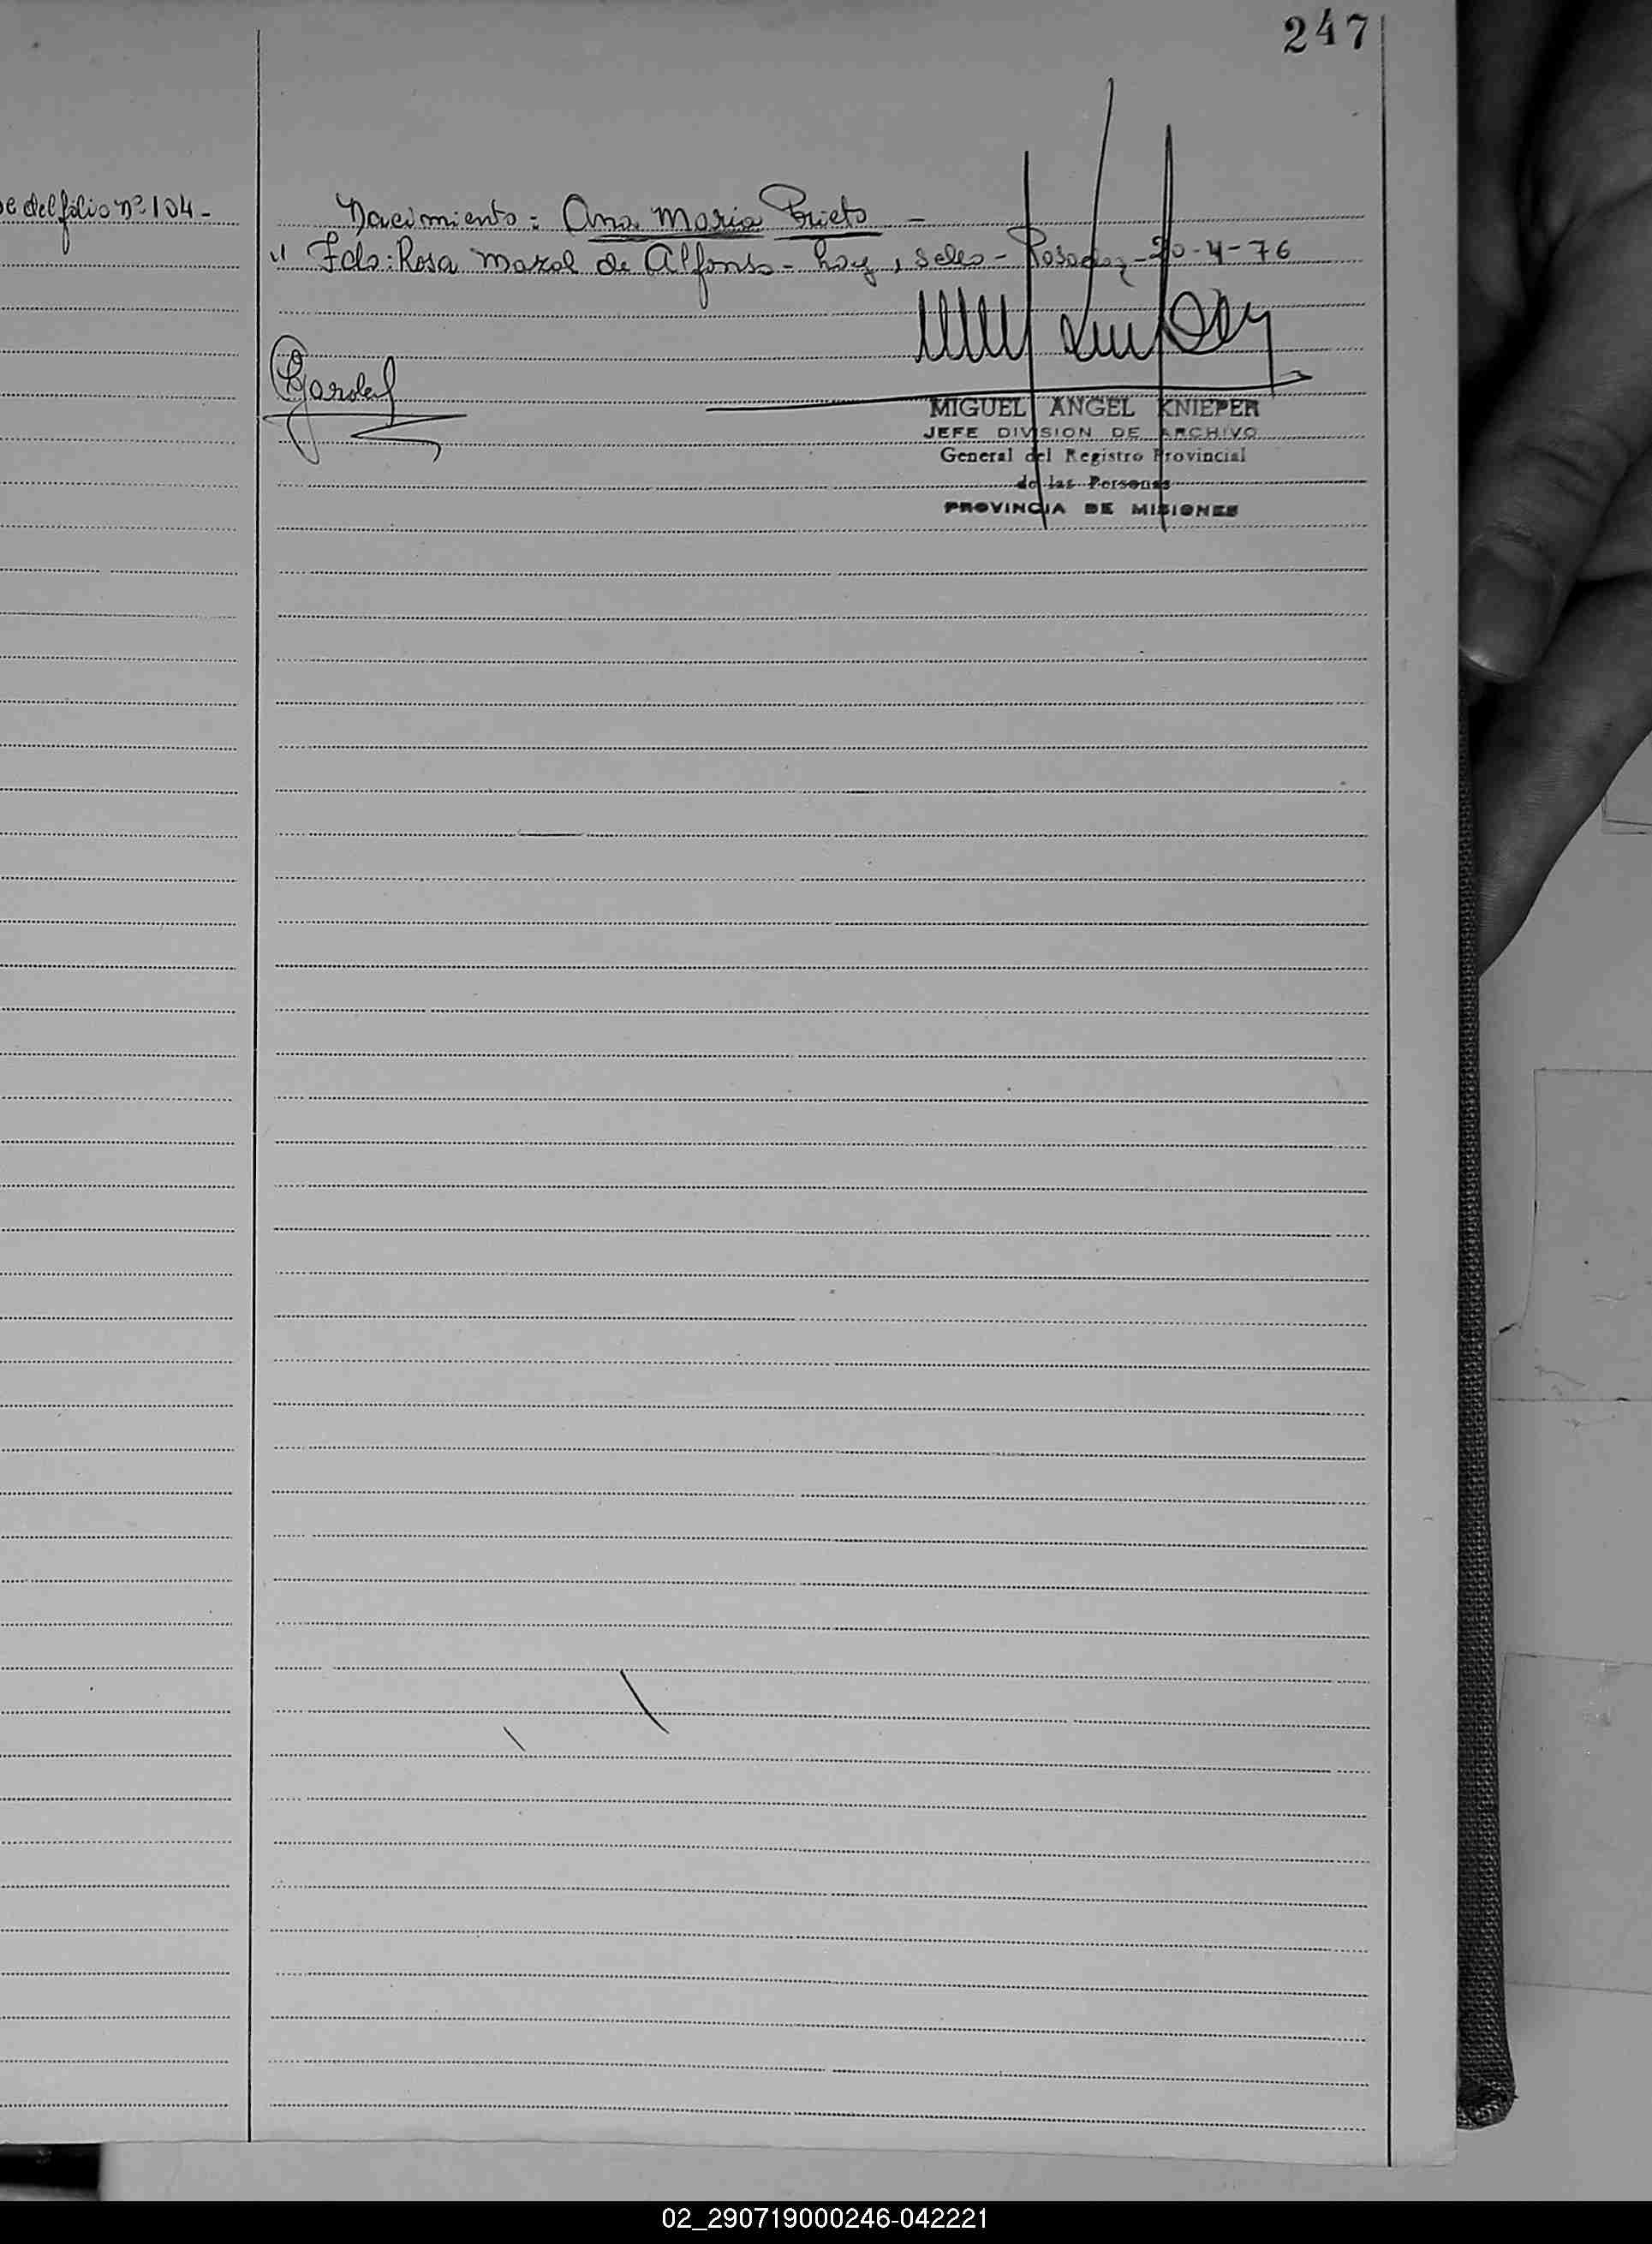 247
e del folio nº 104-
Nacimiento: Ana Maria Prieto -
" Fdo: Rosa Mazal de Alfonso - hay, sello - Posadas - 20-4-76
MIGUEL ANGEL KNIEPER
JEFE DIVISION DE ARCHIVO
General del Registro Provincial
de las Personas
PROVINCIA DE MISIONES
02_290719000246-042221